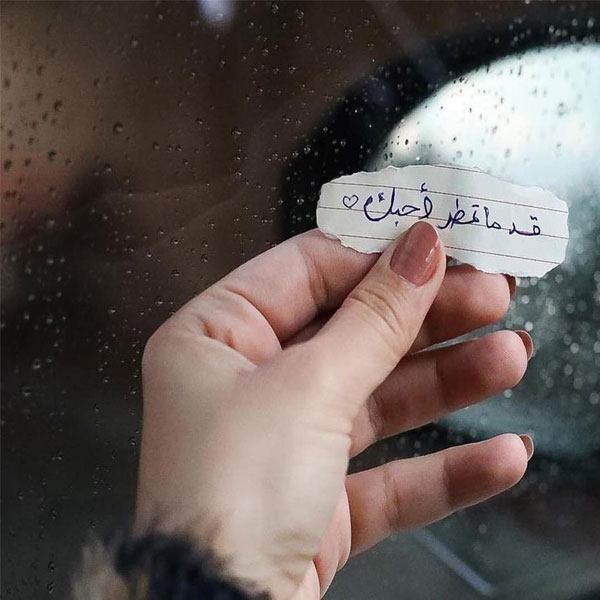 قد ما تمطر أحبك ♡